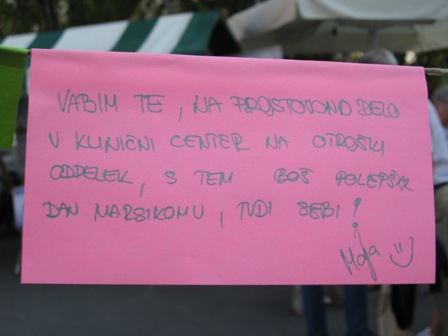 VABIM TE, NA PROSTOVOLJNO DELO
V KLINIČNI CENTER NA OTROŠKI
ODDELEK, S TEM BOŠ POLEPŠAL
DAN MARSIKOMU, TUDI SEBI!
Maja :)